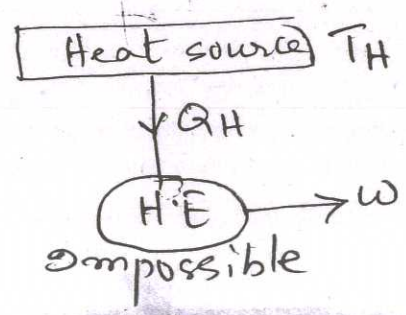 Heat source TH
QH
H.E W
Impossible